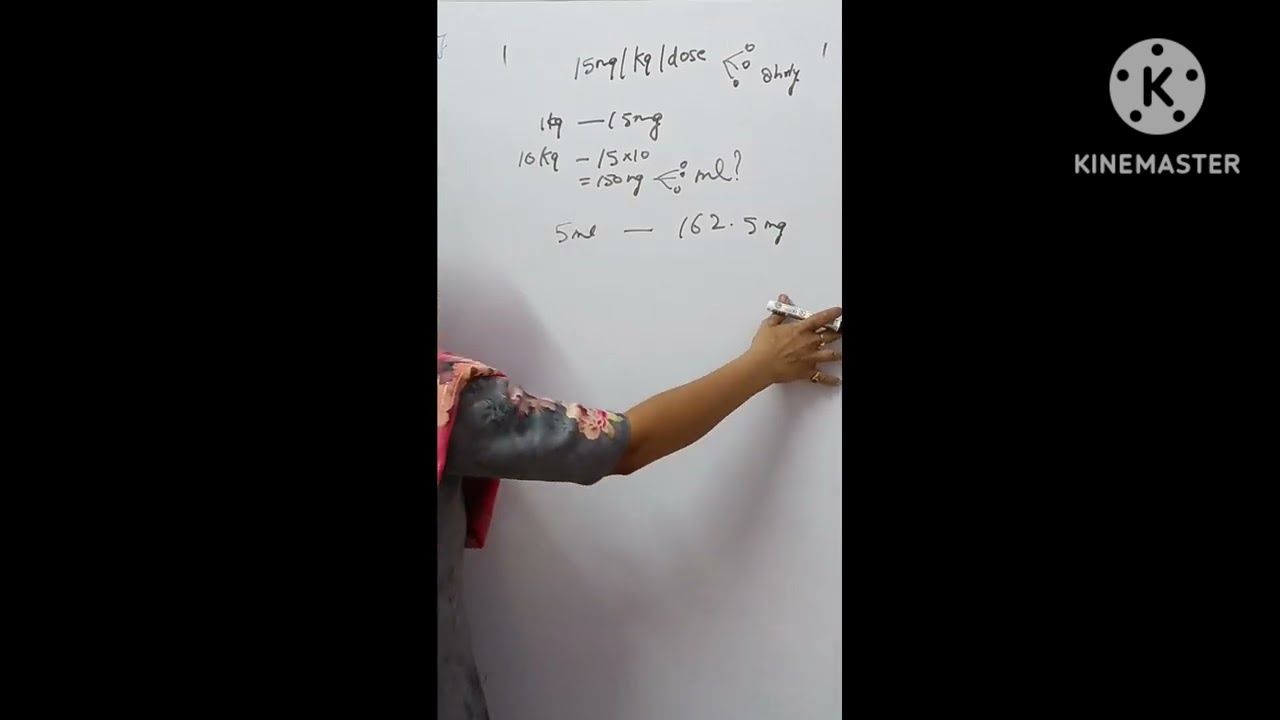 15mg/kg/dose 8hrly
1kg — 15mg
10kg — 15×10
= 150mg ml?
5ml — 162.5mg
K
KINEMASTER